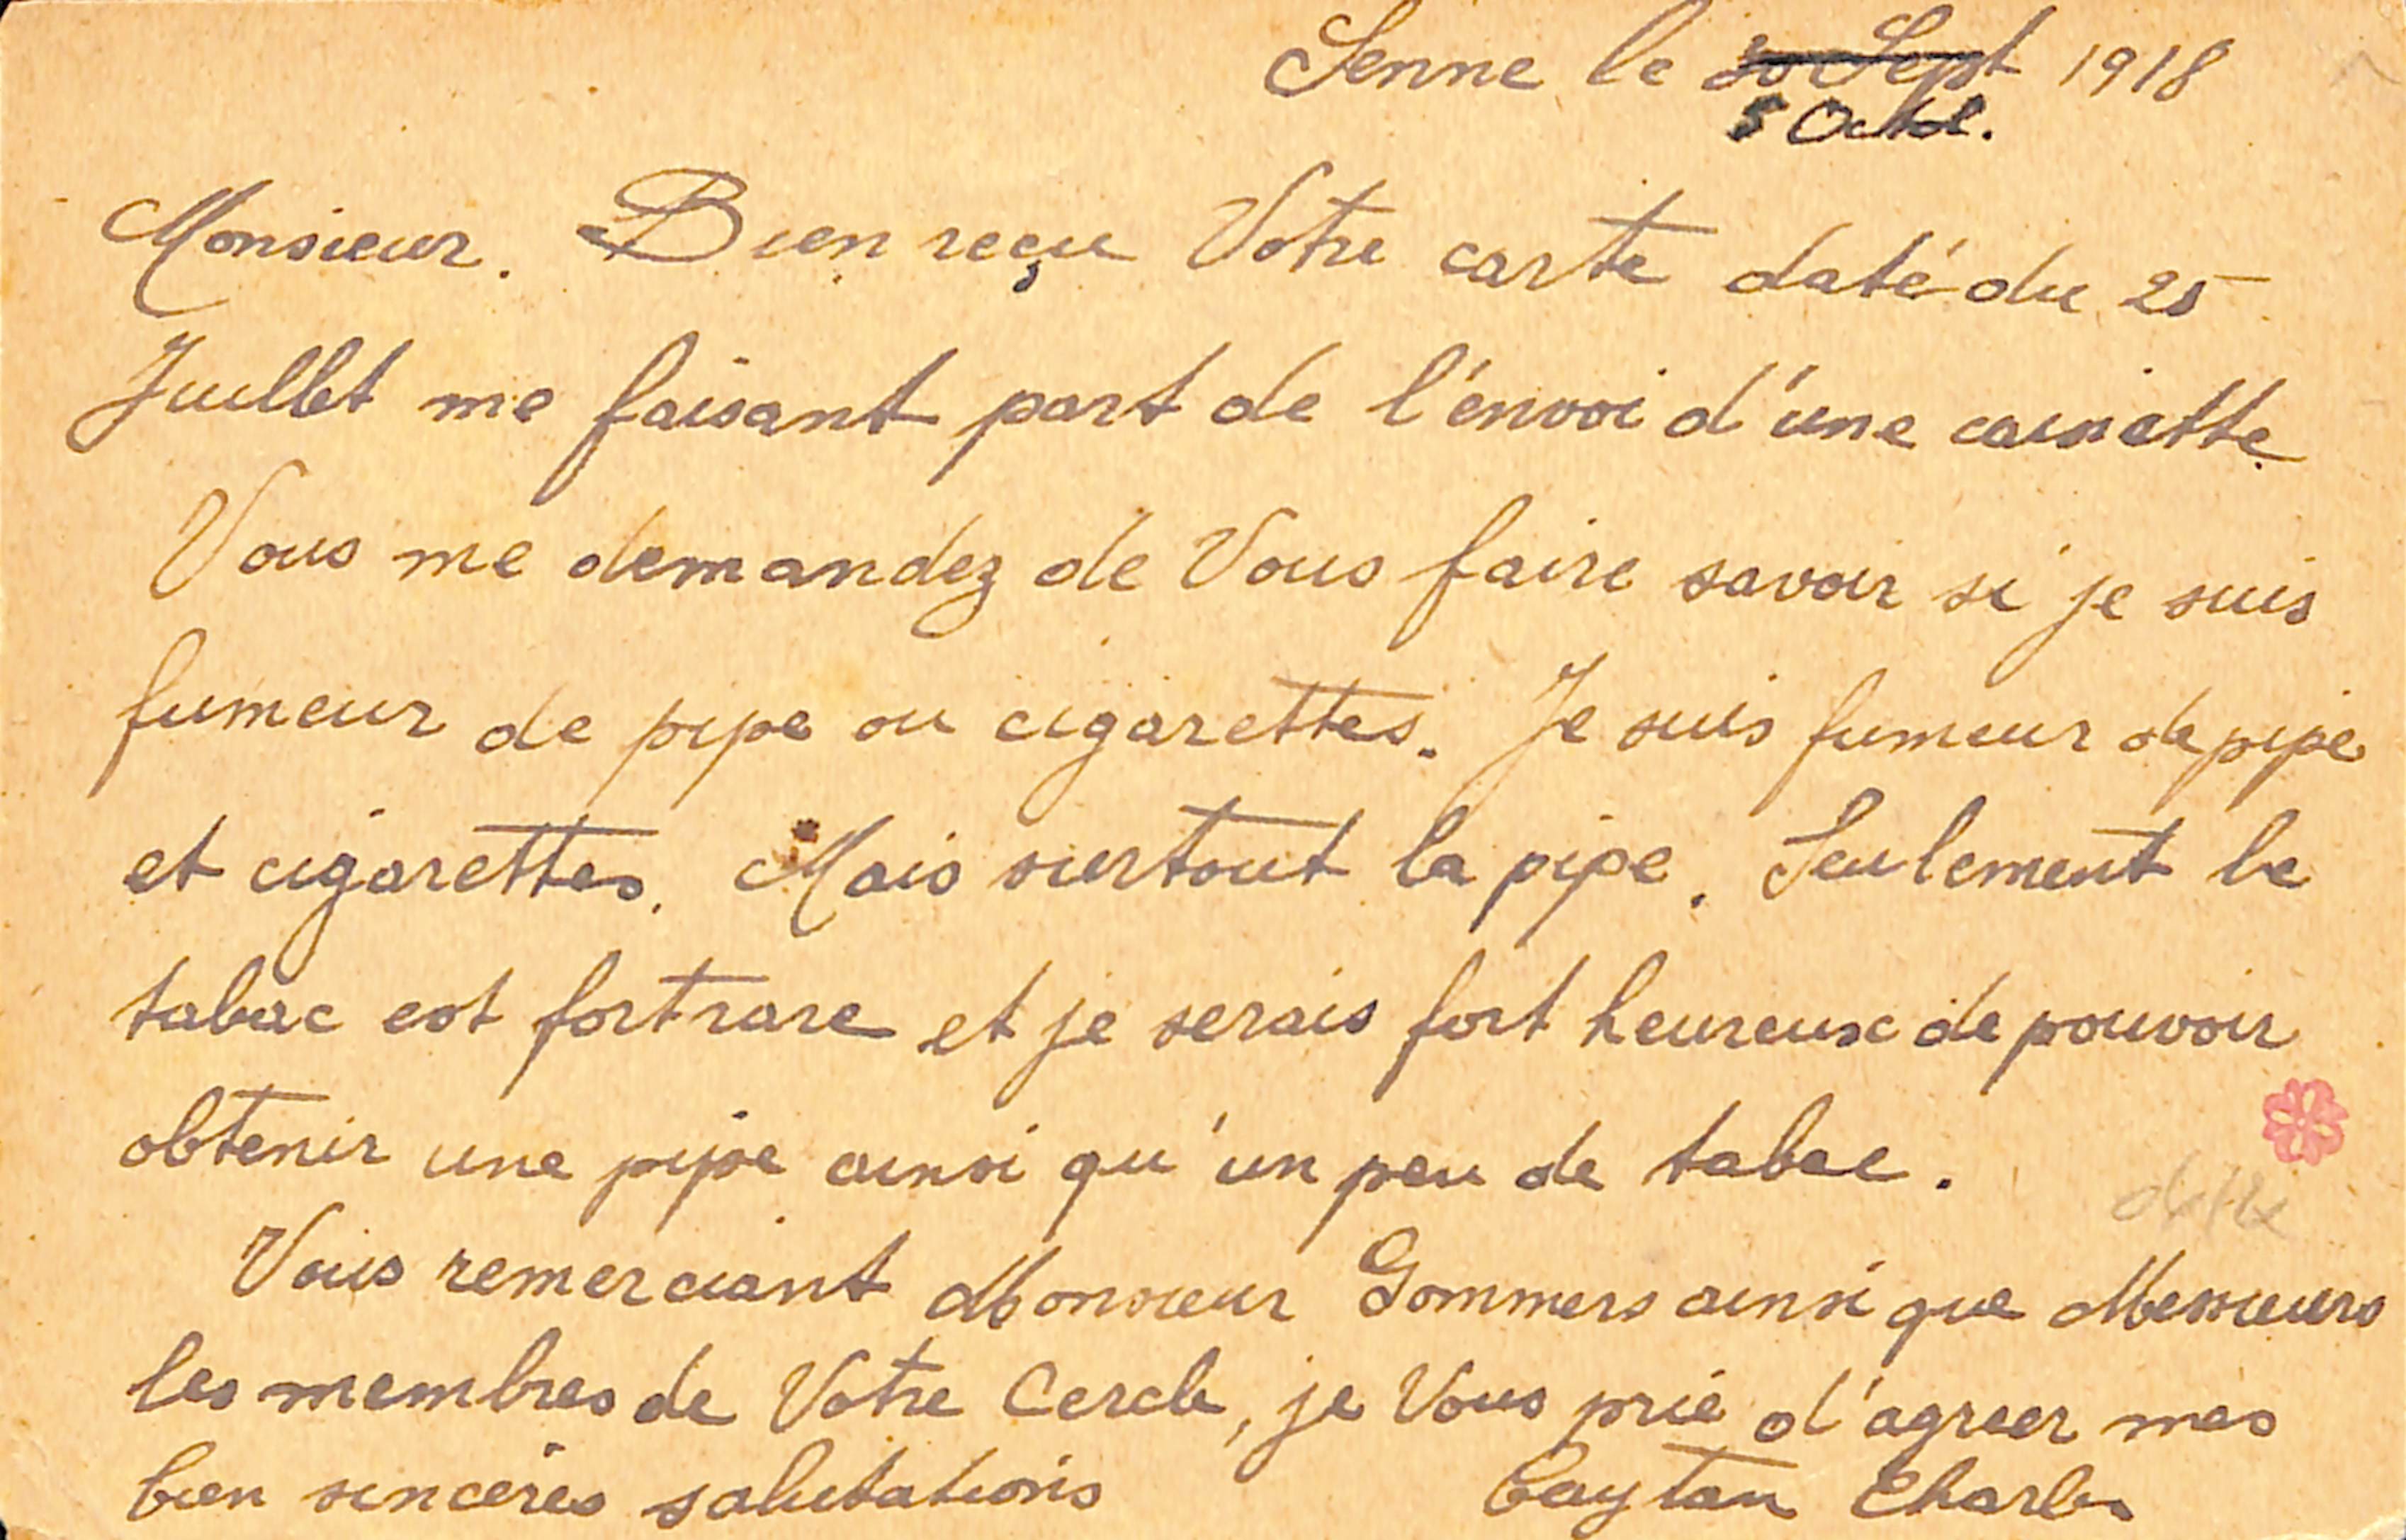 Senne le 30 Sept 1918
5 Octol.
Monsieur. Bien reçu Votre carte daté du 25
Juillet me faisant part de l'énvoi d'une caissette.
Vous me demandez de Vous faire savoir si je suis
fumeur de pipe ou cigarettes. Je suis fumeur de pipe
et cigarettes. Mais surtout la pipe. Seulement le
tabac est fort rare et je serais fort heureux de pouvoir
obtenir une pipe ainsi qu'un peu de tabac.
Vous remerciant Monsieur Gommers ainsi que Messieurs
les membres de Votre Cercle, je Vous prie d'agreer mes
bien sincères salutations Caytan Charles